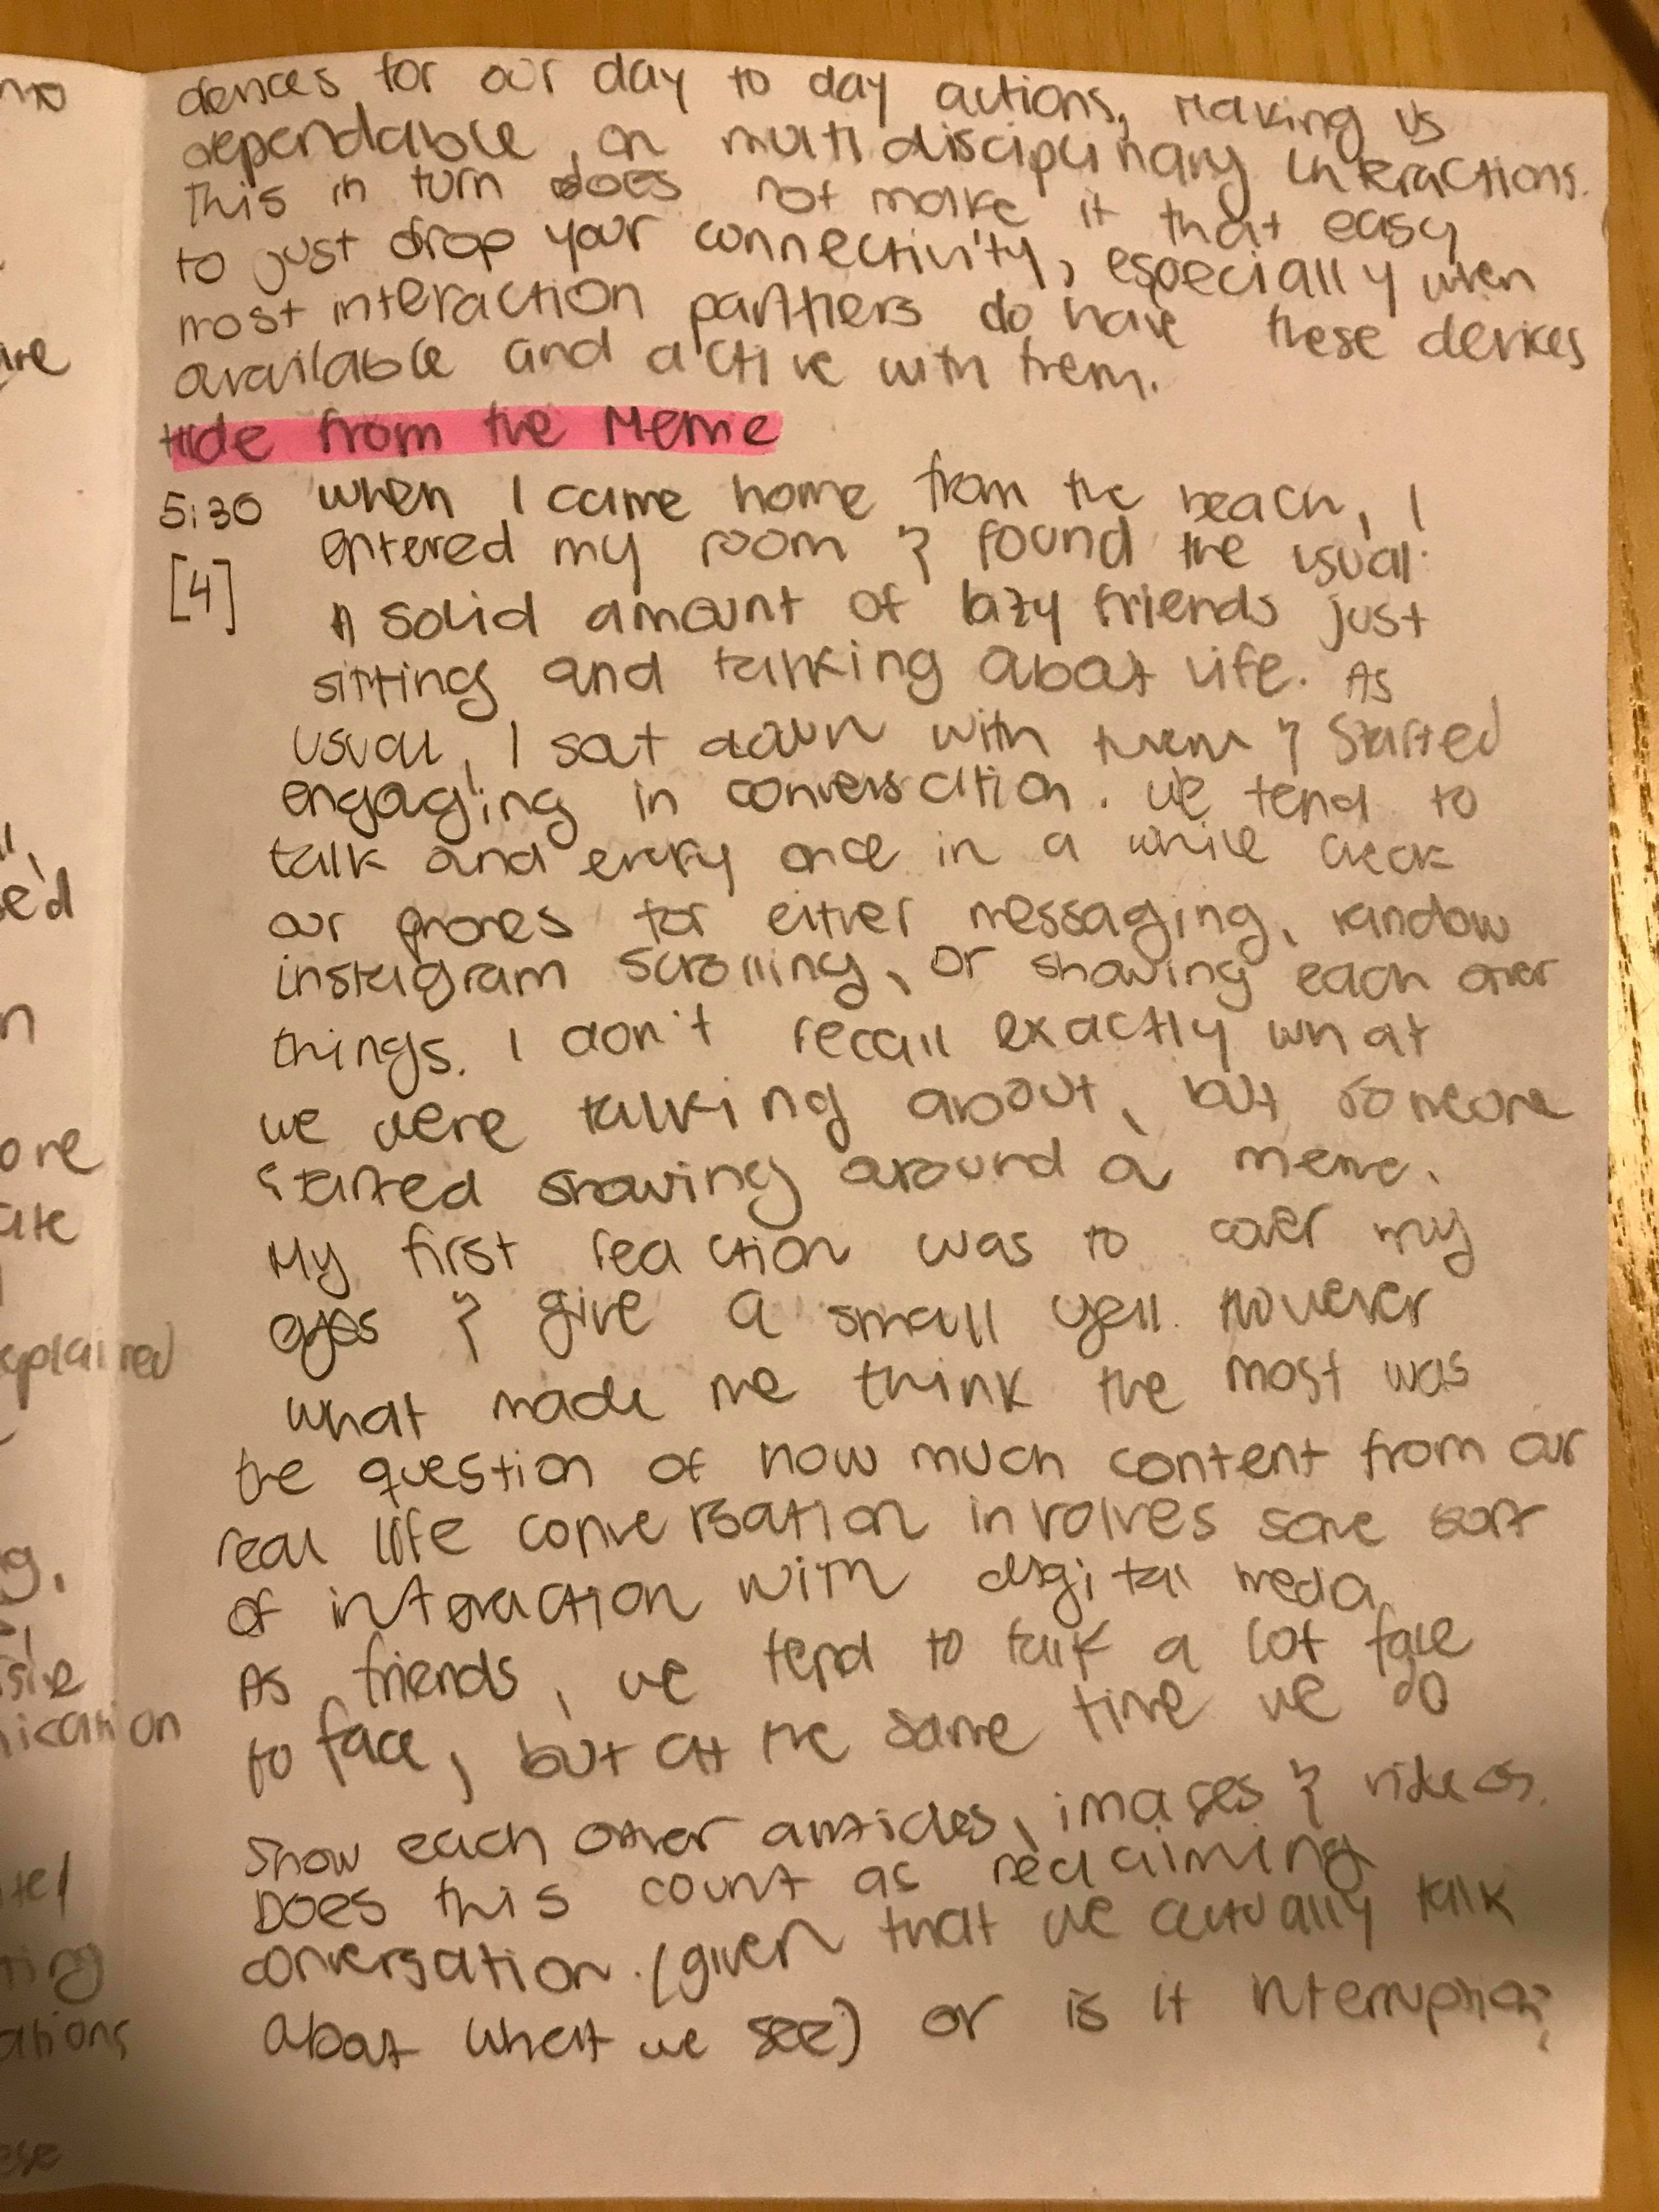 devices for our day to day actions, making us
dependable on multidisciplinary interactions.
This in turn does not make it that easy
to just drop your connectivity, especially when
most interaction partners do have these devices
available and active with them.
Hide from the Meme
5:30 when I came home from the beach, I
entered my room & found the usual:
[4] A solid amount of lazy friends just
sitting and talking about life. As
usual, I sat down with them & started
engaging in conversation. We tend to
talk and every once in a while check
our phones for either messaging, random
instagram scrolling, or showing each other
things. I don't recall exactly what
we were talking about, but someone
started showing around a meme.
My first reaction was to cover my
eyes & give a small yell. However
what made me think the most was
the question of how much content from our
real life conversation involves some sort
of interaction with digital media.
As friends, we tend to talk a lot face
to face, but at the same time we do
show each other articles, images & videos.
Does this count as reclaiming
conversation (given that we actually talk
about what we see) or is it interruption?
no
ine
e'd
n
ore
ate
explained
g.
sive
nication
ting
ations
ese